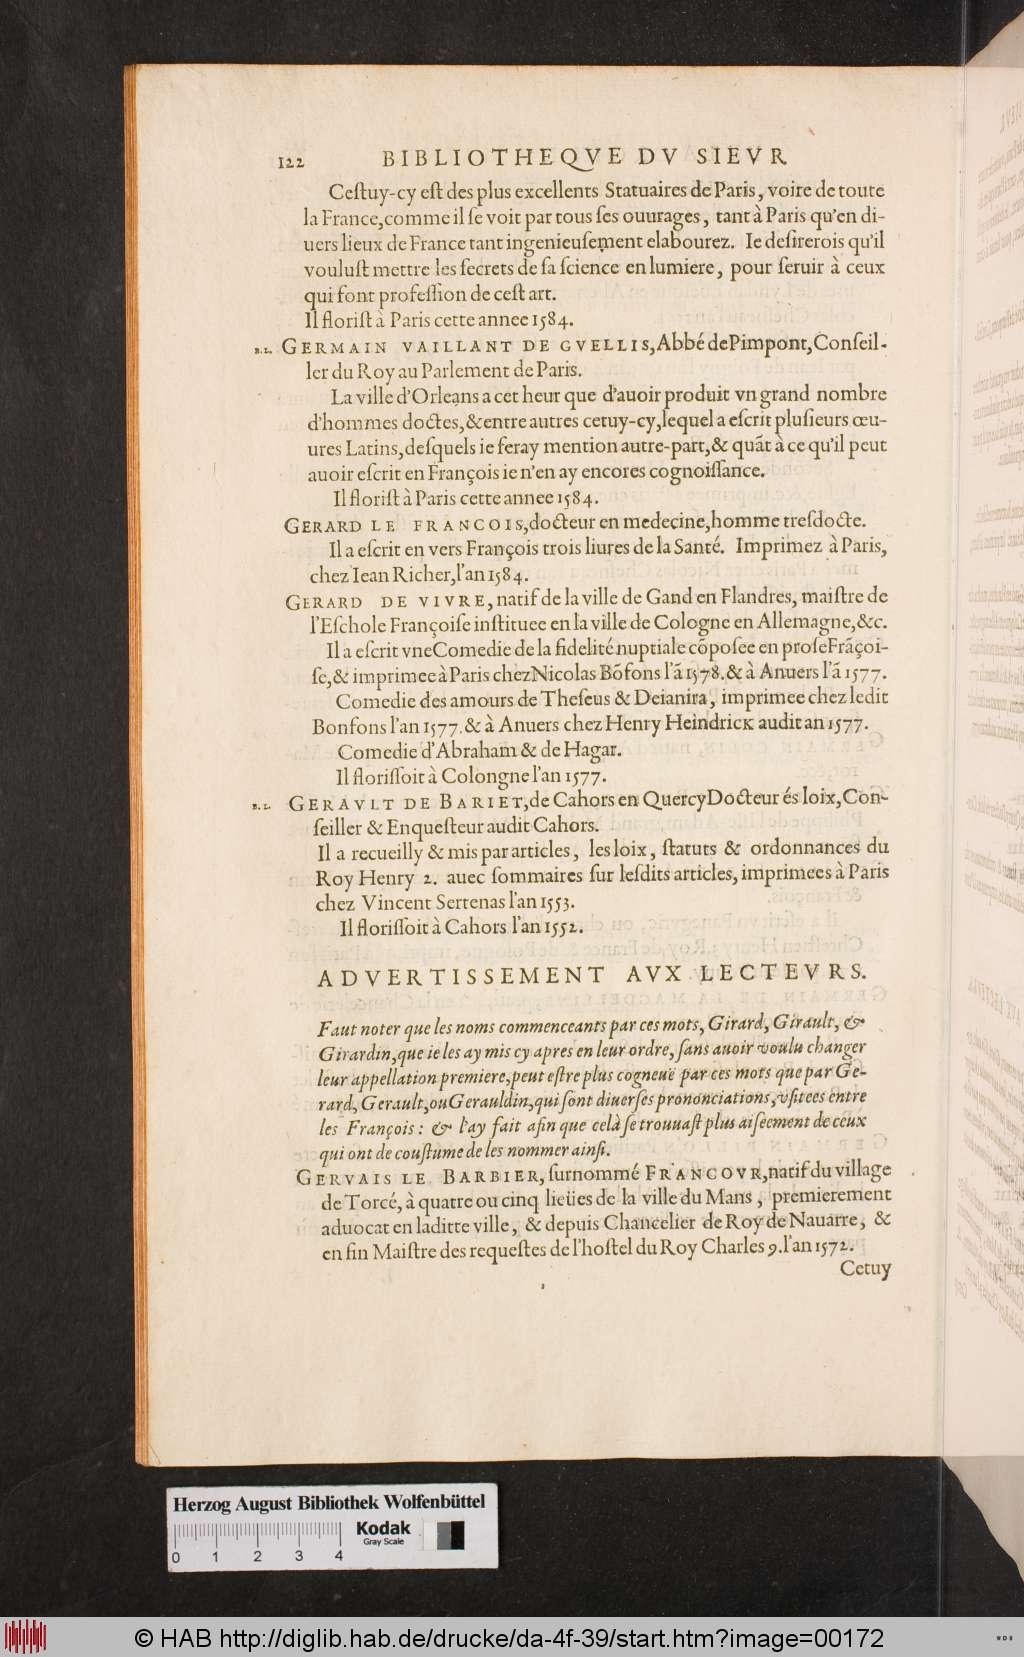 122 BIBLIOTHEQVE DV SIEVR
Ceſtuy-cy eſt des plus excellents Statuaires de Paris, voire de toute
la France, comme il ſe voit par tous ſes ouurages, tant à Paris qu'en di-
uers lieux de France tant ingenieuſement elabourez. Ie deſirerois qu'il
vouluſt mettre les ſecrets de ſa ſcience en lumiere, pour ſeruir à ceux
qui font profeſſion de ceſt art.
Il floriſt à Paris cette annee 1584.
B.L. GERMAIN VAILLANT DE GVELLIS, Abbé de Pimpont, Conſeil-
ler du Roy au Parlement de Paris.
La ville d'Orleans a cet heur que d'auoir produit vn grand nombre
d'hommes doctes, & entre autres cetuy-cy, lequel a eſcrit pluſieurs œu-
ures Latins, deſquels ie feray mention autre-part, & quãt à ce qu'il peut
auoir eſcrit en François ie n'en ay encores cognoiſſance.
Il floriſt à Paris cette annee 1584.
GERARD LE FRANCOIS, docteur en medecine, homme treſdocte.
Il a eſcrit en vers François trois liures de la Santé. Imprimez à Paris,
chez Iean Richer, l'an 1584.
GERARD DE VIVRE, natif de la ville de Gand en Flandres, maiſtre de
l'Eſchole Françoiſe inſtituee en la ville de Cologne en Allemagne, &c.
Il a eſcrit vne Comedie de la fidelité nuptiale cõpoſee en proſe Frãçoi-
ſe, & imprimee à Paris chez Nicolas Bõfons l'ã 1578. & à Anuers l'ã 1577.
Comedie des amours de Theſeus & Deianira, imprimee chez ledit
Bonfons l'an 1577. & à Anuers chez Henry Heindrick audit an 1577.
Comedie d'Abraham & de Hagar.
Il floriſſoit à Colongne l'an 1577.
B.L. GERAVLT DE BARIET, de Cahors en Quercy Docteur és loix, Con-
ſeiller & Enqueſteur audit Cahors.
Il a recueilly & mis par articles, les loix, ſtatuts & ordonnances du
Roy Henry 2. auec ſommaires ſur leſdits articles, imprimees à Paris
chez Vincent Sertenas l'an 1553.
Il floriſſoit à Cahors l'an 1552.
ADVERTISSEMENT AVX LECTEVRS.
Faut noter que les noms commenceants par ces mots, Girard, Girault, &
Girardin, que ie les ay mis cy apres en leur ordre, ſans auoir voulu changer
leur appellation premiere, peut eſtre plus cogneuë par ces mots que par Ge-
rard, Gerault, ou Gerauldin, qui ſont diuerſes prononciations, vſitees entre
les François: & l'ay fait afin que celà ſe trouuaſt plus aiſeement de ceux
qui ont de couſtume de les nommer ainſi.
GERVAIS LE BARBIER, ſurnommé FRANCOVR, natif du village
de Torcé, à quatre ou cinq lieües de la ville du Mans, premierement
aduocat en laditte ville, & depuis Chancelier de Roy de Nauarre, &
en fin Maiſtre des requeſtes de l'hoſtel du Roy Charles 9. l'an 1572.
Cetuy
Herzog August Bibliothek Wolfenbüttel
Kodak
Gray Scale
0 1 2 3 4
© HAB http://diglib.hab.de/drucke/da-4f-39/start.htm?image=00172